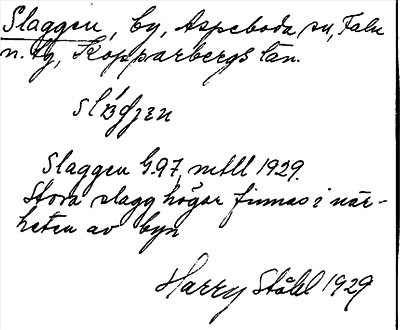 Slaggen, by, Aspeboda sn, Falu
n. tg, Kopparbergs län.
Slaggen G.97, mtll 1929.
Stora slagghögar finnas i när-
heten av byn
Harry Ståhl 1929